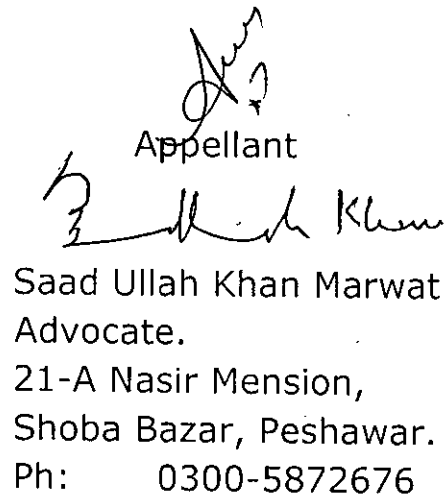 Appellant
Khan
Saad Ullah Khan Marwat
Advocate.
21-A Nasir Mension,
Shoba Bazar, Peshawar.
Ph: 0300-5872676